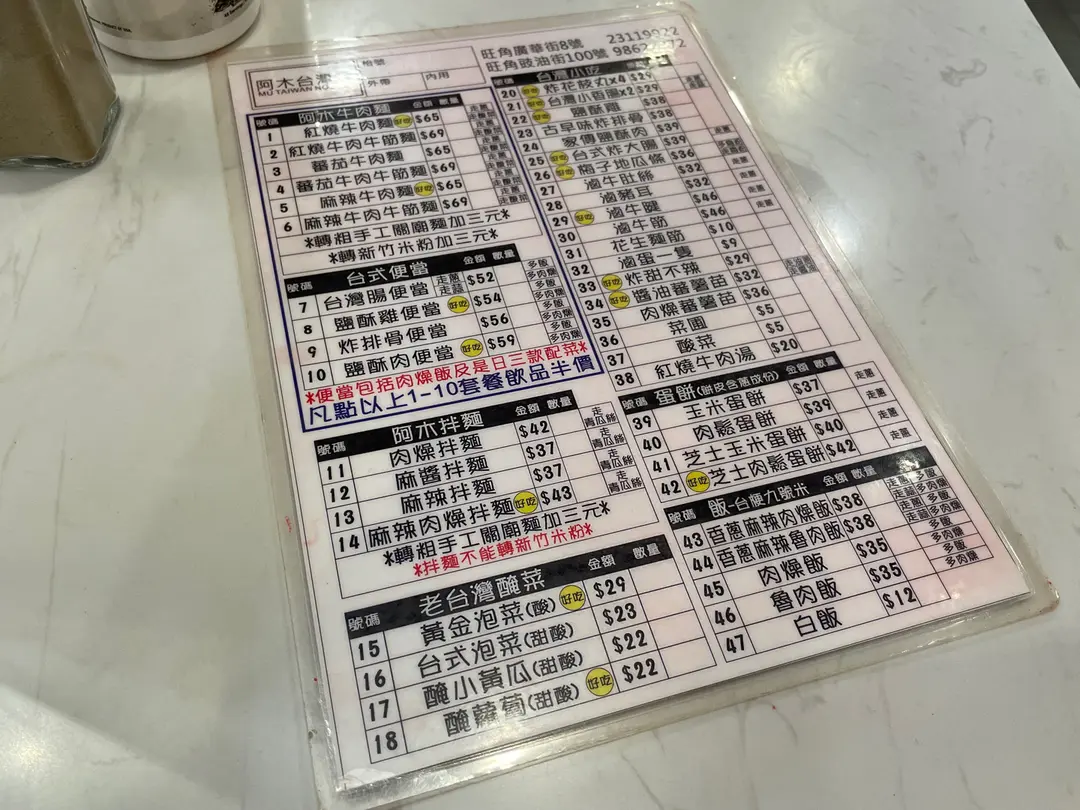 阿木台灣
MU TAIWAN NO
檯號
外帶
內用
旺角廣華街8號 23119822
旺角豉油街100號
號碼 阿木牛肉麵 金額 數量
1 紅燒牛肉麵 好吃 $65 走蔥
2 紅燒牛肉牛筋麵 $69
3 蕃茄牛肉麵 $65
4 蕃茄牛肉牛筋麵 $69
5 麻辣牛肉麵 好吃 $65
6 麻辣牛肉牛筋麵 $69
*轉粗手工關廟麵加三元*
*轉新竹米粉加三元*
號碼 台式便當 金額 數量
7 台灣腸便當 走蔥 走蒜 $52 多飯 多肉燥
8 鹽酥雞便當 好吃 $54 多飯 多肉燥
9 炸排骨便當 $56 多飯 多肉燥
10 鹽酥肉便當 好吃 $59 多飯 多肉燥
*便當包括肉燥飯及是日三款配菜*
凡點以上1-10套餐飲品半價
號碼 阿木拌麵 金額 數量
11 肉燥拌麵 $42 走青瓜絲
12 麻醬拌麵 $37 走青瓜絲
13 麻辣拌麵 $37 走青瓜絲
14 麻辣肉燥拌麵 好吃 $43
*轉粗手工關廟麵加三元*
*拌麵不能轉新竹米粉*
號碼 老台灣醃菜 金額 數量
15 黃金泡菜(酸) 好吃 $29
16 台式泡菜(甜酸) $23
17 醃小黃瓜(甜酸) $22
18 醃蘿蔔(甜酸) 好吃 $22
號碼 台灣小吃 金額 數量
20 好吃 炸花枝丸x4 $29
21 好吃 台灣小香腸x2 $29
22 好吃 鹽酥雞 $38
23 古早味炸排骨 $38
24 家傳鹽酥肉 $39
25 好吃 台式炸大腸 $39
26 好吃 梅子地瓜條 $36
27 滷牛肚絲 $32
28 滷豬耳 $32
29 好吃 滷牛腱 $46
30 滷牛筋 $46
31 花生麵筋 $10
32 滷蛋一隻 $9
33 好吃 炸甜不辣 $29
34 好吃 醬油蕃薯苗 $32
35 肉燥蕃薯苗 $36
36 菜圃 $5
37 酸菜 $5
38 紅燒牛肉湯 $20
號碼 蛋餅(餅皮含蔥成份) 金額 數量
39 玉米蛋餅 $37 走蔥
40 肉鬆蛋餅 $39 走蔥
41 芝士玉米蛋餅 $40 走蔥
42 好吃 芝士肉鬆蛋餅 $42 走蔥
號碼 飯-台梗九號米 金額 數量
43 香蔥麻辣肉燥飯 $38 走蔥 多飯 走蒜 多肉燥
44 香蔥麻辣魯肉飯 $38 走蔥 多飯 走蒜 多肉燥
45 肉燥飯 $35 多飯 多肉燥
46 魯肉飯 $35 多飯 多肉燥
47 白飯 $12